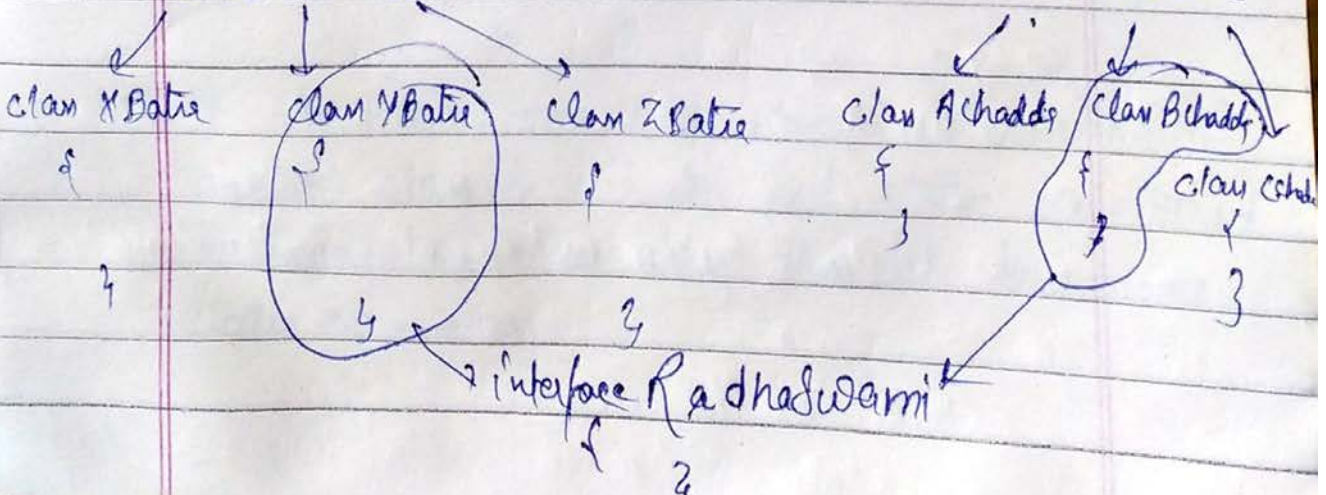 class XBatra class YBatra class ZBatra class AChadda class BChadda
{ { { { { class CChada
} } {
} } } }
interface RadhaSwami
{
}